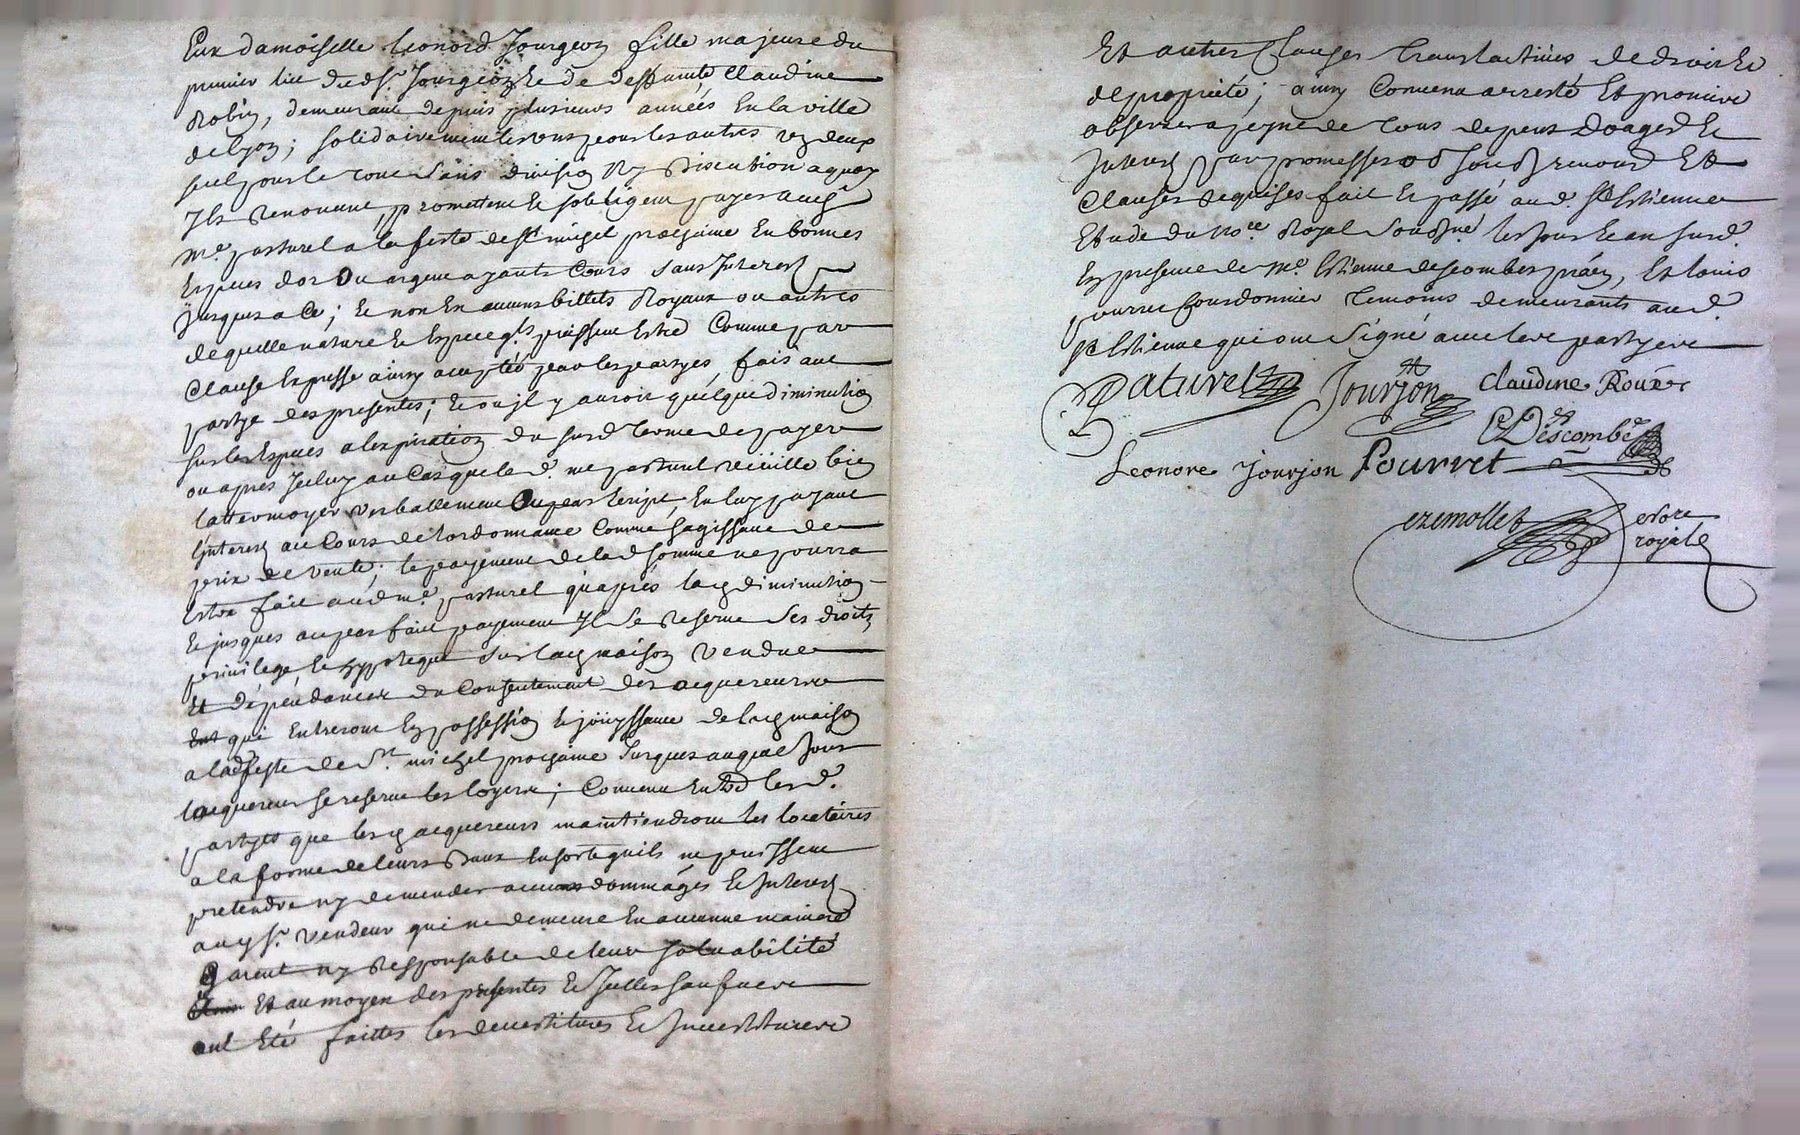 Eux damoiselle Leonord Jourgeon fille majeure du
premier lict dud. sr. Jourgeon & de deffuncte Claudine
Robin, demeurant depuis plusieurs années En la ville
de lyon; solidairement les uns pour les autres un deux
seul pour le tout sans division ny discution a quoy
Ils Renoncent promettent & sobligent payer aud.
Me. pasturel a la feste de St michel prochaine En bonnes
Especes dor Ou argent ayants Cours sans Interest
Jusques a Ce; & non En aucuns billets Royaux ou autres
de quelle nature & Espece qls puissent Estre Comme par
Clause Expresse ainsy acceptée par les partyes, fais ant
partye des presentes; & ou jl y auroit quelque diminution
sur les Especes a lexpiration du susd. terme de payer
ou apres Jceluy au Cas que led. me pasturel veuille bien
lattermoyer verballement Ou par Escript, En luy payant
lInterest au Cours de lordonnance Comme sagissant de
prix de vente; le payement de lad. somme ne pourra
Estre fait aud. me. pasturel quaprés lad. diminution
& jusques au parfait payement Il Se Reserve Ses droits
privilege, & hypoteque sur lad. maison vendue
Et dépendances du Consentement des acquereurs
qui Entreront En possession & joüyssance de lad. maison
a lad. feste de St. michel prochaine Jusques auquel Jour
lacquereur se reserve les loyers; Convenu Entre les d.
partyes que les d. acquereurs maintiendront les locatéires
a la forme de leurs Baux En sorte quils ne puissent
pretendre ny demender aucuns dommages & Interest
aud. sr. vendeur qui ne demeure En aucunne maniere
garent ny Responsable de leur solvabilité
Et au moyen des presentes & Jcelles sauf
ont Eté faittes les devestitures & Jnvestitures
Et autres Clauses translactives de droit &
de proprieté; ainsy Convenu arresté Et promis
observer a peyne de tous depens domages &
Interest par promesses obf soub renond Et
Clauses Requises fait & passé aud. St Estienne
Etude du nore Royal Soubsné les Jour & an susd.
En presence de Me. Estienne descombes práen, Et louis
pourret Courdonnier temoins demeurants aud.
St Estienne qui ont Signé avec les partyes
Paturel Jourjon Claudine Roux
E Descombes
Leonore Jourjon Pourret
ezemollet nore
royal